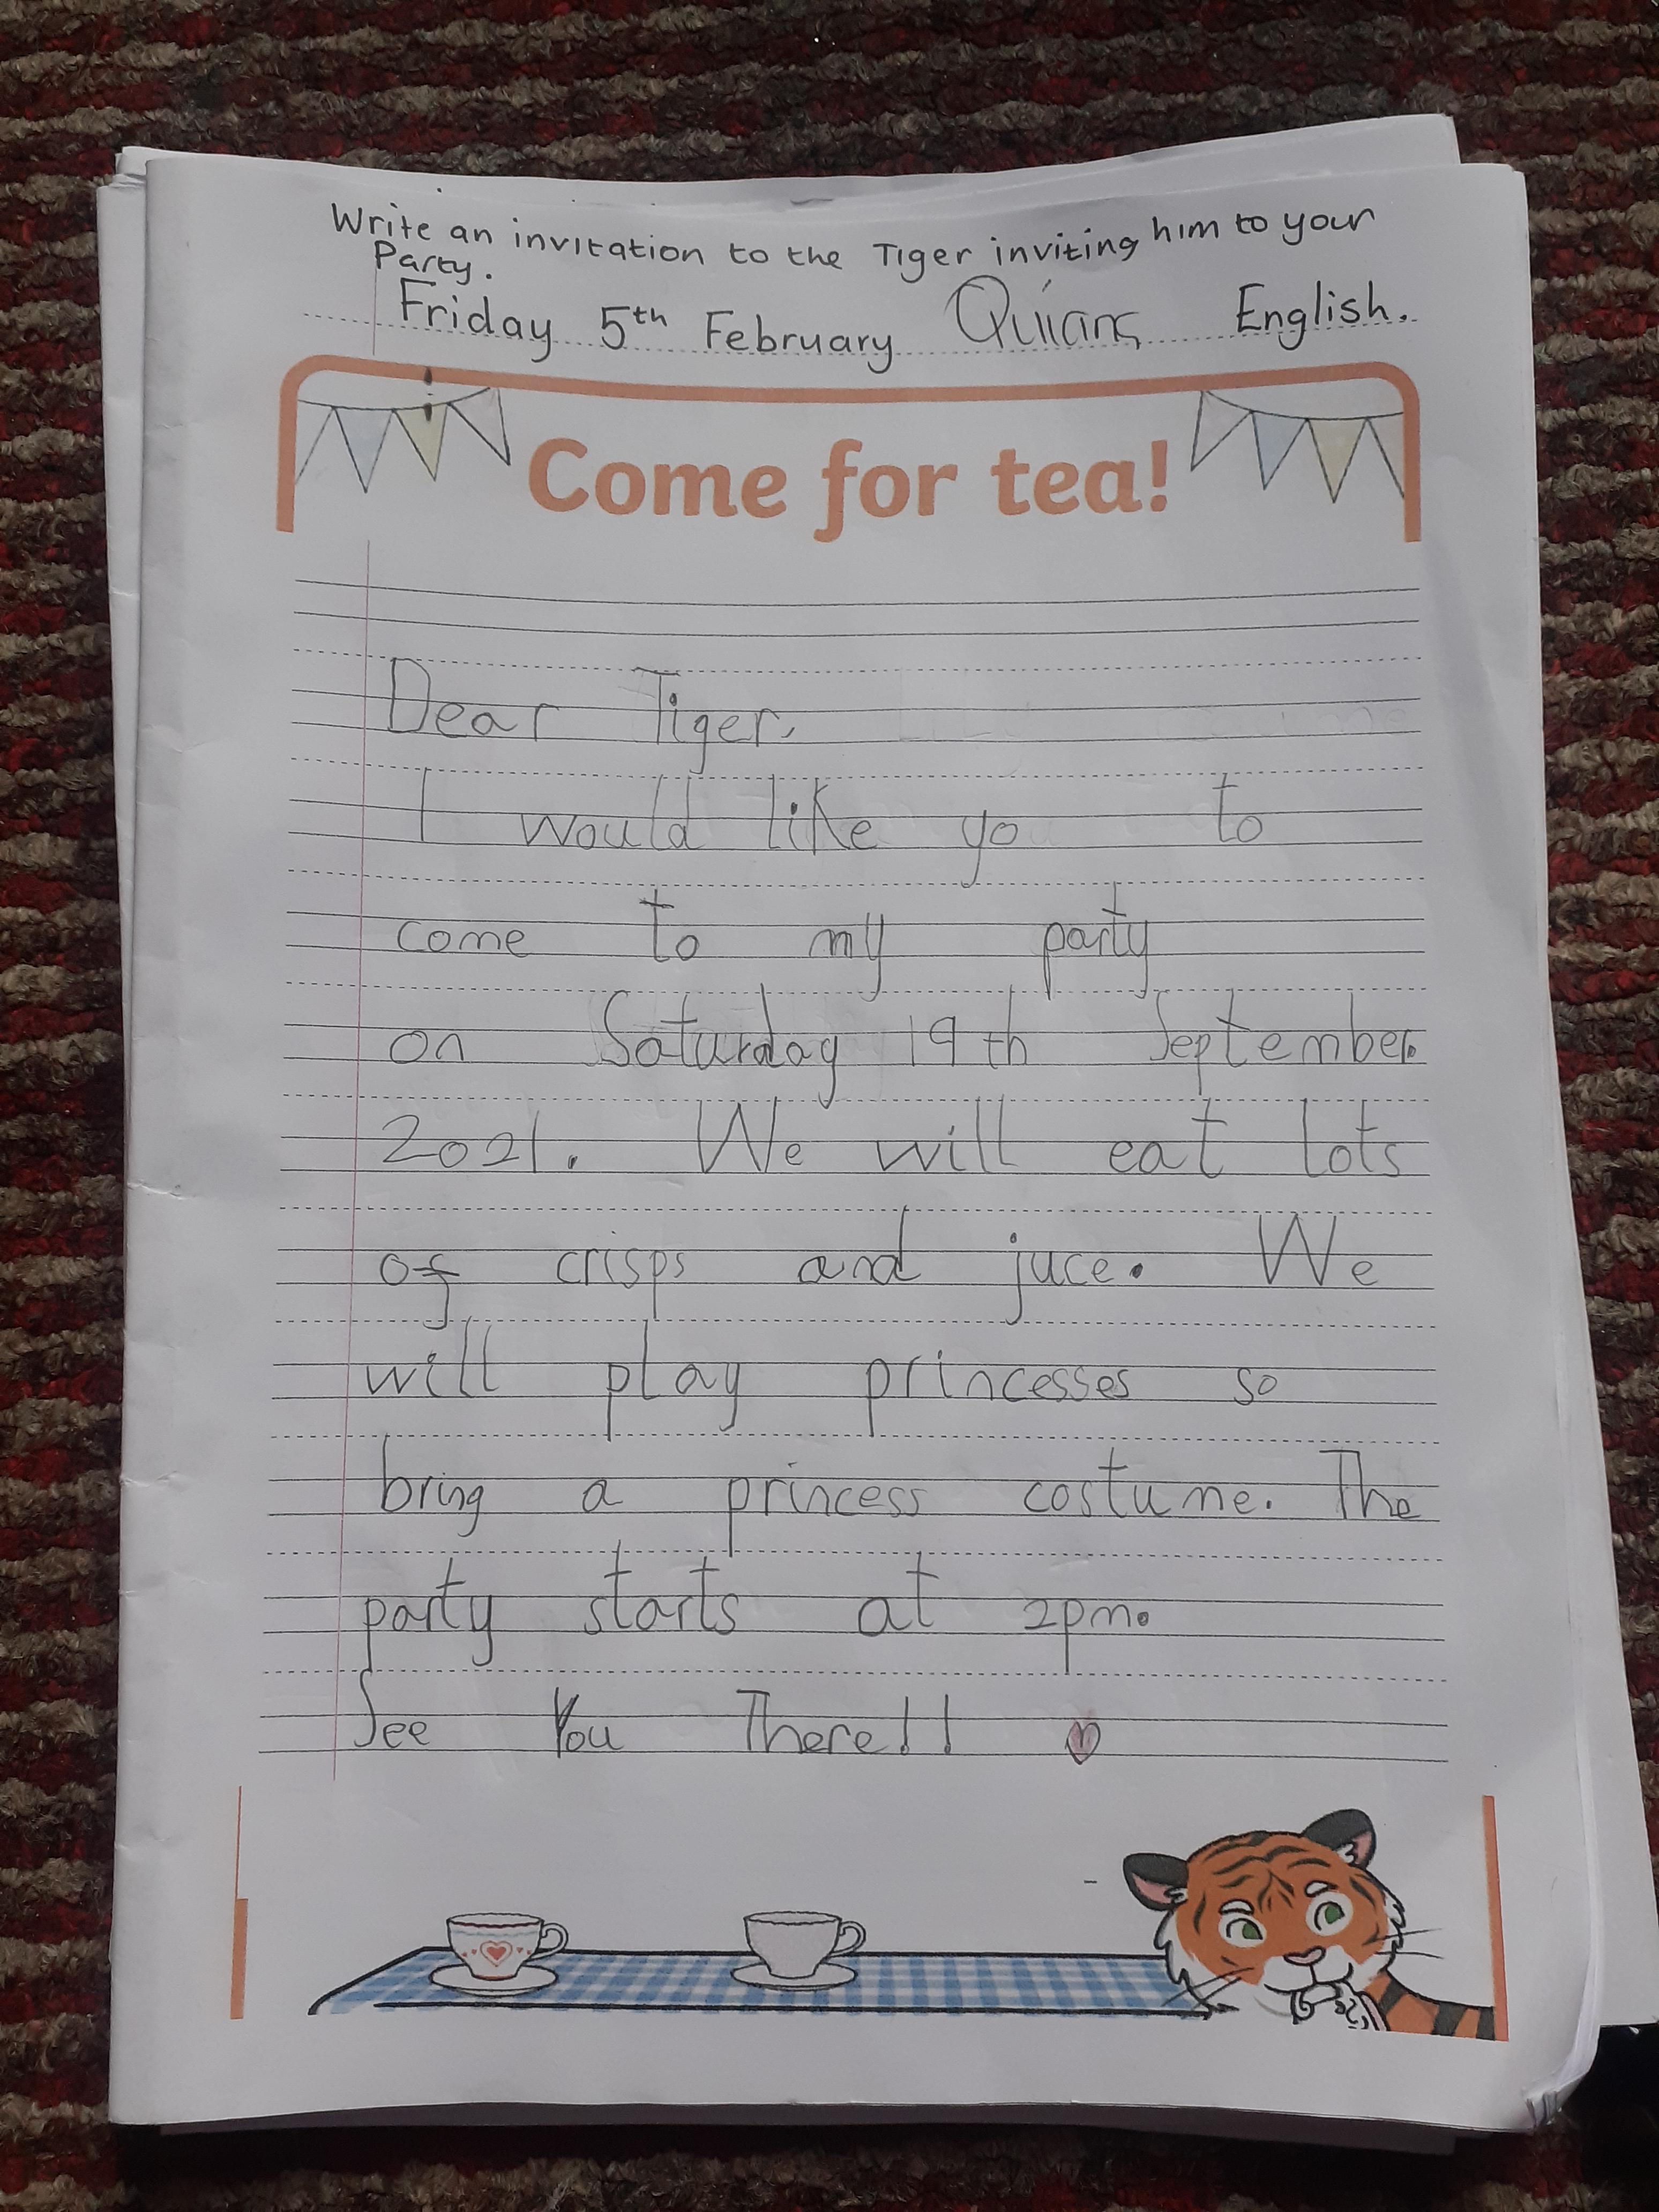 Write an invitation to the Tiger inviting him to your
Party.
Friday 5th February English.
Come for tea!
Dear Tiger,
I would like yo to
come to my party
on Saturday 19th September
2021. We will eat lots
of crisps and juce. We
will play princesses so
bring a princess costume. The
party starts at 2pm.
See You There!!